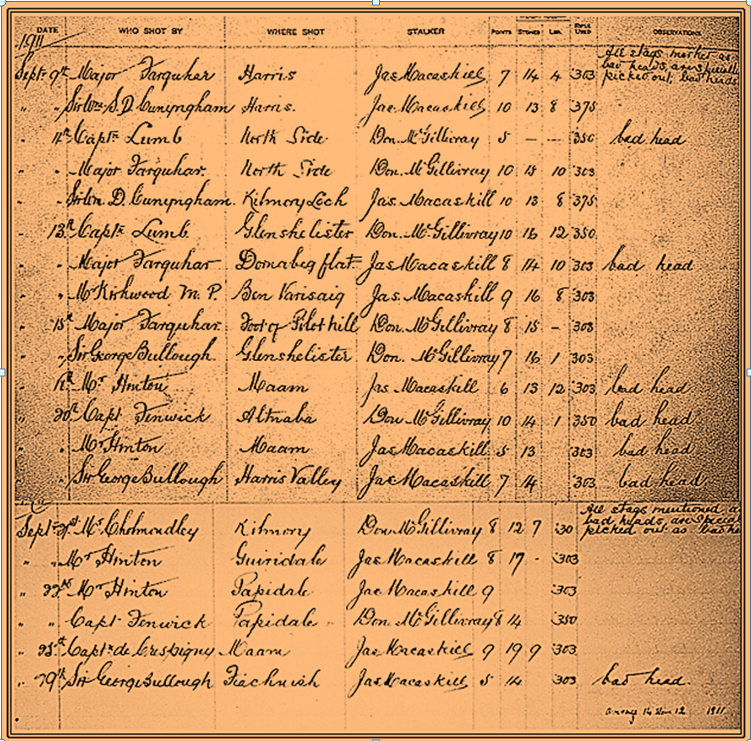 DATE WHO SHOT BY WHERE SHOT STALKER POINTS STONES LBS. RIFLE USED OBSERVATIONS
1911
All stags marked as
bad heads, are specially
picked out, bad heads
Sept. 9th Major Farquhar Harris Jas Macaskill 7 14 4 303
" " Sir Wm. S.D. Cunyngham Harris. Jas Macaskill 10 13 8 375
" Captn Lumb North Side Don. McGillivray 5 — — 350 bad head
" " Major Farquhar. North Side Don. McGillivray 10 15 10 303
" " Sir Wm. D. Cunyngham. Kilmory Loch Jas. Macaskill 10 13 8 375
" 13th Captn Lumb Glenshelister Don. McGillivray 10 16 12 350
" " Major Farquhar Dornabeg flat Jas Macaskill 8 14 10 303 bad head
" " Mr Kirkwood M.P. Ben Varisaig Jas. Macaskill 9 16 8 303
" 15th Major Farquhar. Foot of Pilot hill Don. McGillivray 8 15 - 303
" " Sir George Bullough. Glenshelister Don. McGillivray 7 16 1 303
" Mr Hinton Maam Jas Macaskill 6 13 12 303 bad head
" 20th Capt Fenwick Altnaba Don McGillivray 10 14 1 350 bad head
" " Mr Hinton Maam Jas Macaskill 5 13 303 bad head
" " Sir George Bullough Harris Valley Jas Macaskill 7 14 303 bad head
All stags mentioned as
bad heads, are specially
picked out as bad heads
Sept. 21st Mr Cholmondley Kilmory Don. McGillivray 8 12 7 .30
" " Mr Hinton Guiridale Jas Macaskill 8 17 - .303
" 22nd Mr Hinton Papidale Jas Macaskill 9 .303
" " Capt Fenwick Papidale Don McGillivray 8 14 .350
" Captn de Crespigny Maam Jas Macaskill 9 19 9 .303
" 29th Sir George Bullough Fiachnish Jas Macaskill 5 14 .303 bad head.
12 1911